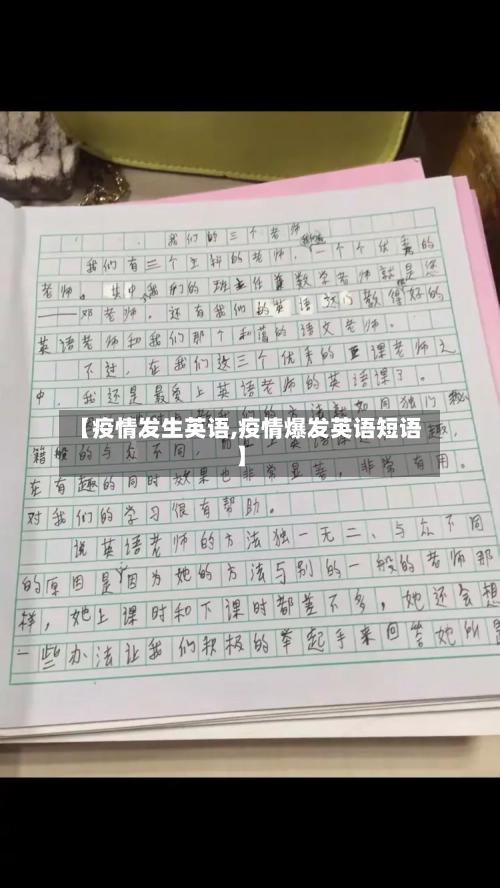 我们的三个老师
我们有三个主科的老师，一个个优秀的
老师。其中我们的班主任兼数学老师就是您
——邓老师。还有我们的英语 教得好的
英语老师和我们那个和蔼的语文老师。
不过，在我们这三个优秀的主课老师之
中，我还是最爱上英语老师的英语课了。
【疫情发生英语,疫情爆发英语短语
】
籍般的与众不同，
在有趣的同时效果也非常显著，非常有用。
对我们的学习很有帮助。
说英语老师的方法独一无二、与众不同
的原因是因为她的方法与别的一般的老师那
样，她上课时和下课时都差不多，她还会想
一些办法让我们积极的举起手来回答她的